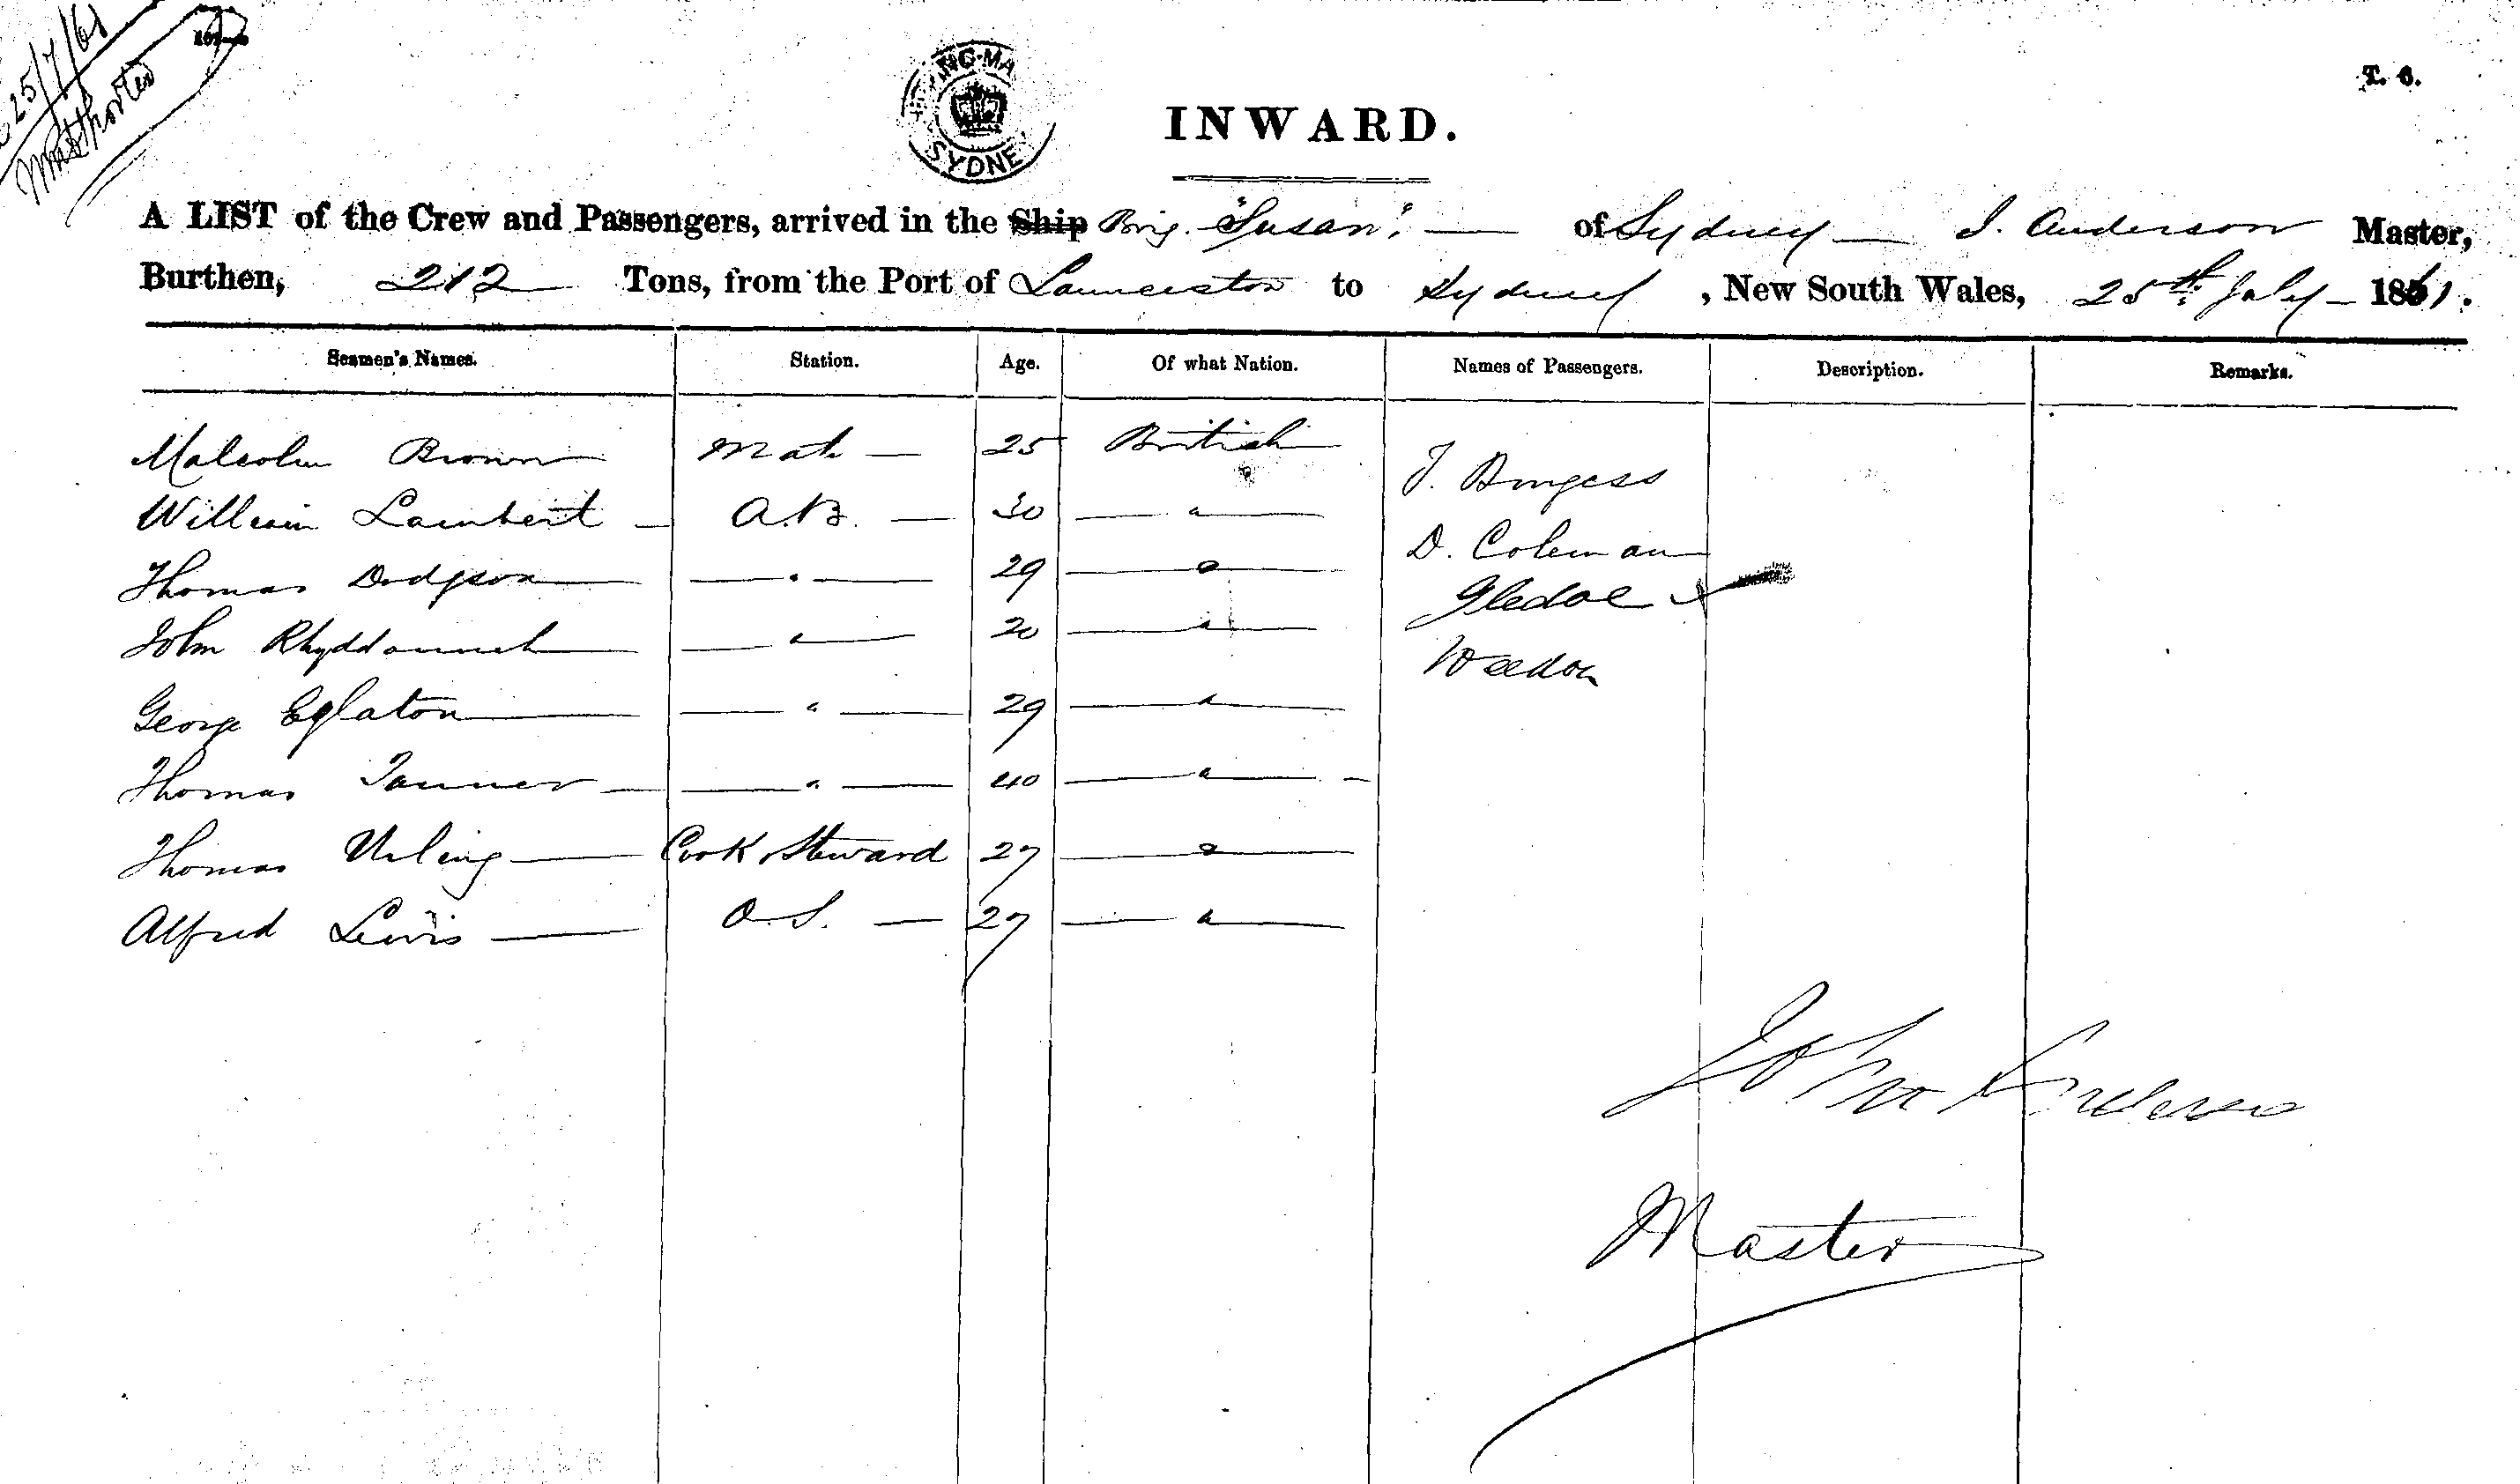 25/7/61
INWARD.
T. C.
SYDNE
A LIST of the Crew and Passengers, arrived in the Ship Brig. "Susan" — of Sydney — J. Anderson Master,
Burthen, 212 Tons, from the Port of Launceston to Sydney, New South Wales, 25th July - 1861.
Seamen's Names. Station. Age. Of what Nation. Names of Passengers. Description. Remarks.
Malcolm Brown Mate — 25 British J. Burgess
William Lambert — A.B. — 30 — " — D. Coleman
Thomas Dodgson — " — 29 — " — Gledoe
John — " — 20 — " — Weedon
George Eglaton — " — 29 — " —
Thomas Tanner — " — 40 — " —
Thomas Urling — Cook & Steward 27 — " —
Alfred Lewis — O.S. — 27 — " —
John Anderson
Master